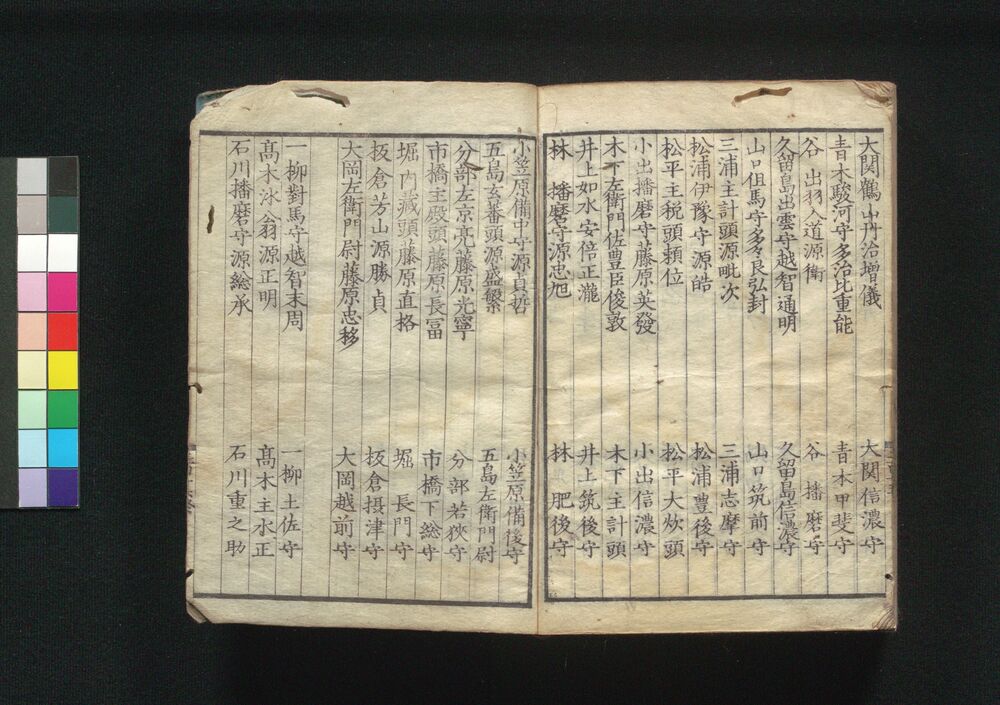 大関鶴山丹治増儀　大関信濃守
青木駿河守多治比重能　青木甲斐守
谷出羽入道源衛　谷播磨守
久留島出雲守越智通明　久留島信濃守
山口但馬守多々良弘封　山口筑前守
三浦主計頭源毗次　三浦志摩守
松浦伊豫守源皓　松浦豊後守
松平主税頭頼位　松平大炊頭
小出播磨守藤原英發　小出信濃守
木下左衛門佐豊臣俊敦　木下主計頭
井上如水安倍正瀧　井上筑後守
林播磨守源忠旭　林肥後守
小笠原備中守源貞哲　小笠原備後守
五島玄蕃頭源盛繁　五島左衛門尉
分部左京亮藤原光寧　分部若狭守
市橋主殿頭藤原長冨　市橋下総守
堀内蔵頭藤原直格　堀長門守
板倉芳山源勝貞　板倉摂津守
大岡左衛門尉藤原忠移　大岡越前守
一柳對馬守越智末周　一柳土佐守
髙木氷翁源正明　髙木主水正
石川播磨守源総承　石川重之助